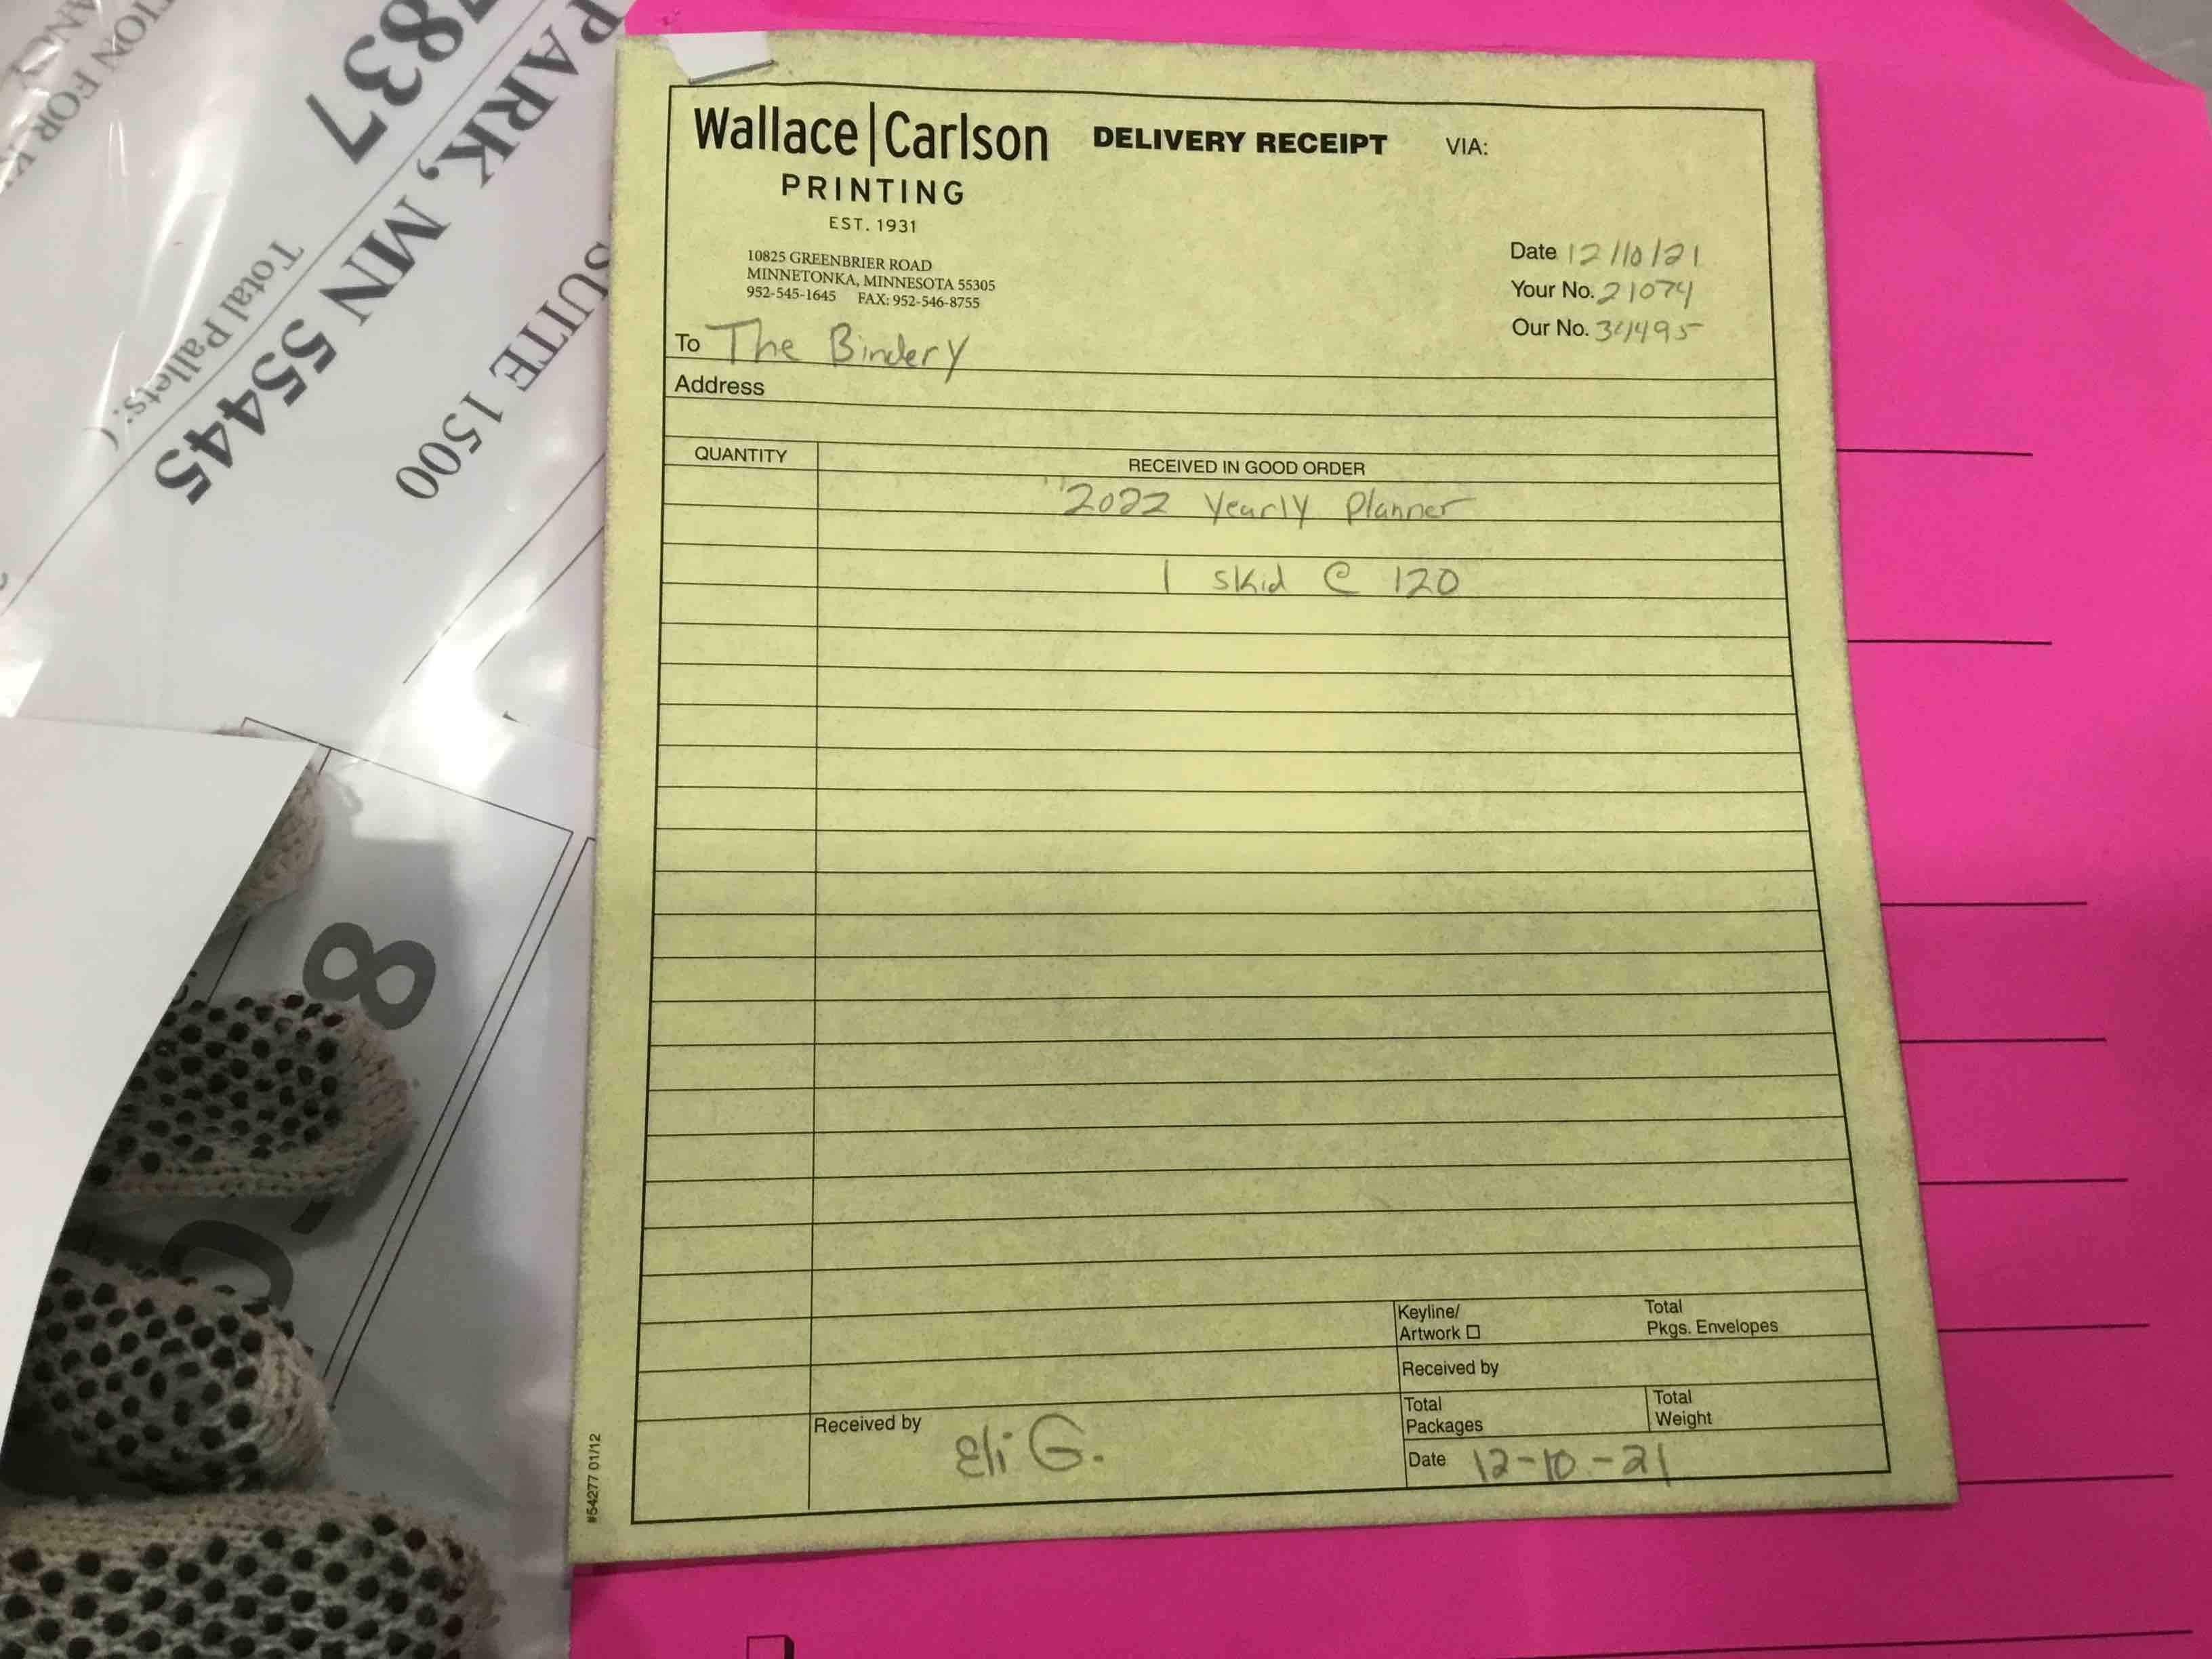 Wallace|Carlson
PRINTING
EST. 1931
10825 GREENBRIER ROAD
MINNETONKA, MINNESOTA 55305
952-545-1645 FAX: 952-546-8755
DELIVERY RECEIPT VIA:
Date 12/10/21
Your No. 21074
Our No. 34495
To The Bindery
Address
QUANTITY RECEIVED IN GOOD ORDER
"2022 Yearly Planner
1 skid @ 120
Keyline/
Artwork ☐
Total
Pkgs. Envelopes
Received by
Total
Packages
Total
Weight
Received by Eli G.
Date 12-10-21
#54277 01/12
TION FOR
837
PARK, MN 55445
SUITE 1500
Total Pallets: (
8